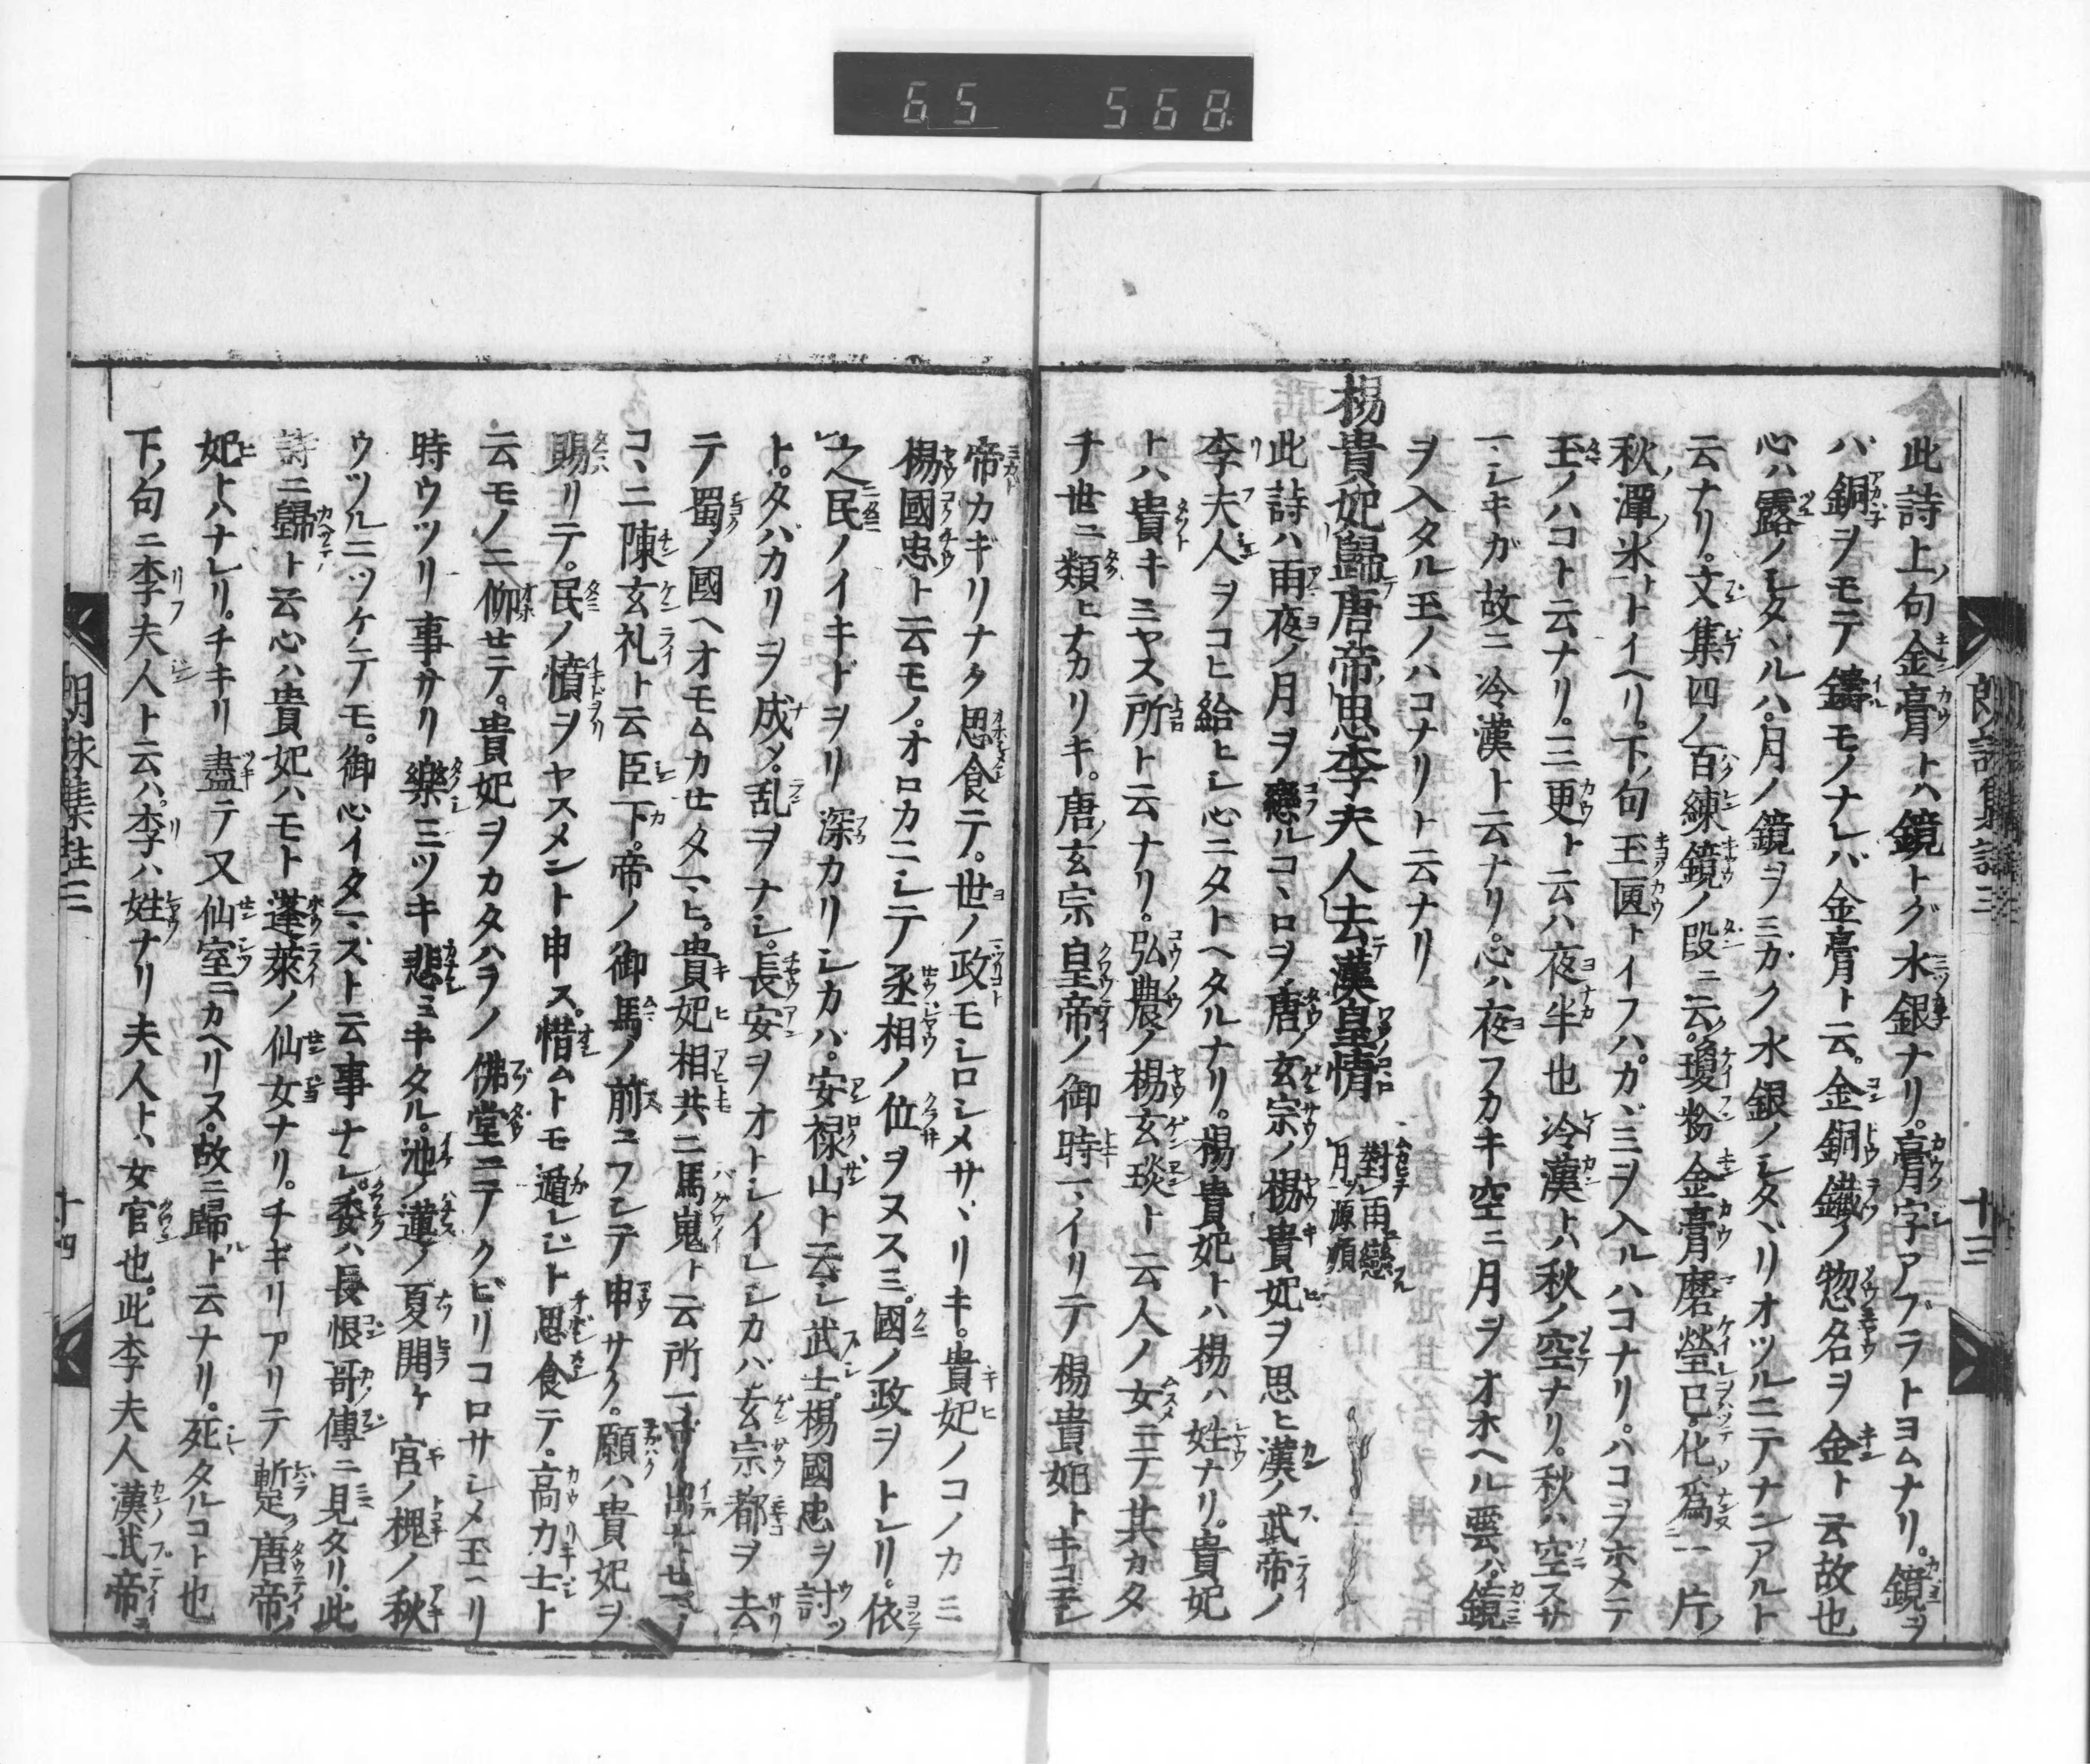 65 568
此詩上ノ句金膏トハ鏡トグ水銀ナリ。膏字アブラトヨムナリ。鏡ヲ
バ銅ヲモテ鑄モノナレバ金膏ト云。金銅鐵ノ惣名ヲ金ト云故也
心ハ露ノシタヽルハ。月ノ鏡ヲミガク水銀ノシタヽリオツルニテナンアルト
云ナリ。文集四ノ百練鏡ノ段ニ云。瓊粉金膏磨瑩已。化爲一片ノ
秋ノ潭ノ水トイヘリ。下ノ句玉匣トイフハ。カヾミヲ入ルハコナリ。ハコヲホメテ
玉ノハコト云ナリ。三更ト云ハ夜半也冷漢トハ秋ノ空ナリ。秋ハ空スサ
マシキガ故ニ冷漢ト云ナリ。心ハ夜フカキ空ニ月ヲオホヘル雲ハ。鏡
ヲ入タル玉ノハコナリト云ナリ
楊貴妃歸唐帝思李夫人去漢皇情 對雨戀月 源順
此詩ハ雨夜ノ月ヲ戀ルコヽロヲ。唐ノ玄宗ノ楊貴妃ヲ思ヒ漢ノ武帝ノ
李夫人ヲコヒ給ヒシ心ニタトヘタルナリ。楊貴妃トハ楊ハ姓ナリ。貴妃
トハ貴キミヤス所ト云ナリ。弘農ノ楊玄琰ト云人ノ女ニテ其カタ
チ世ニ類ヒナカリキ。唐ノ玄宗皇帝ノ御時マイリテ楊貴妃トキコエシ
朗詠集註三 十三
帝カギリナク思食テ。世ノ政モシロシメサヽリキ。貴妃ノコノカミ
楊國忠ト云モノ。オロカニシテ丞相ノ位ヲヌスミ。國ノ政ヲトレリ。依
之民ノイキドヲリ深カリシカバ。安禄山ト云シ武士。楊國忠ヲ討ッ
ト。タバカリヲ成メ。乱ヲナシ。長安ヲオトシイレシカバ玄宗都ヲ去
テ蜀ノ國ヘオモムカせタマヒ。貴妃相共ニ馬嵬ト云所マデ出サせ
コヽニ陳玄礼ト云臣下。帝ノ御馬ノ前ニフシテ申サク。願ハ貴妃ヲ
賜リテ。民ノ憤ヲヤスメント申ス。惜ムトモ遁レジト思食テ。高力士ト
云モノニ仰せテ。貴妃ヲカタハラノ佛堂ニテクビリコロサシメ玉ヘリ
時ウツリ事サリ樂ミツキ悲ミキタル。池ノ蓮ノ夏開ケ宮ノ槐ノ秋
ウツルニツケテモ。御心イタマズト云事ナシ。委ハ長恨哥傳ニ見タリ。此
詩ニ歸ト云心ハ貴妃ハモト蓬萊ノ仙女ナリ。チギリアリテ暫ク唐帝ノ
妃トハナレリ。チキリ盡テ又仙室ニカヘリヌ。故ニ歸ト云ナリ。死タルコト也
下ノ句ニ李夫人ト云ハ。李ハ姓ナリ夫人トハ女官也。此李夫人漢武帝ニ
朗詠集註三 十四